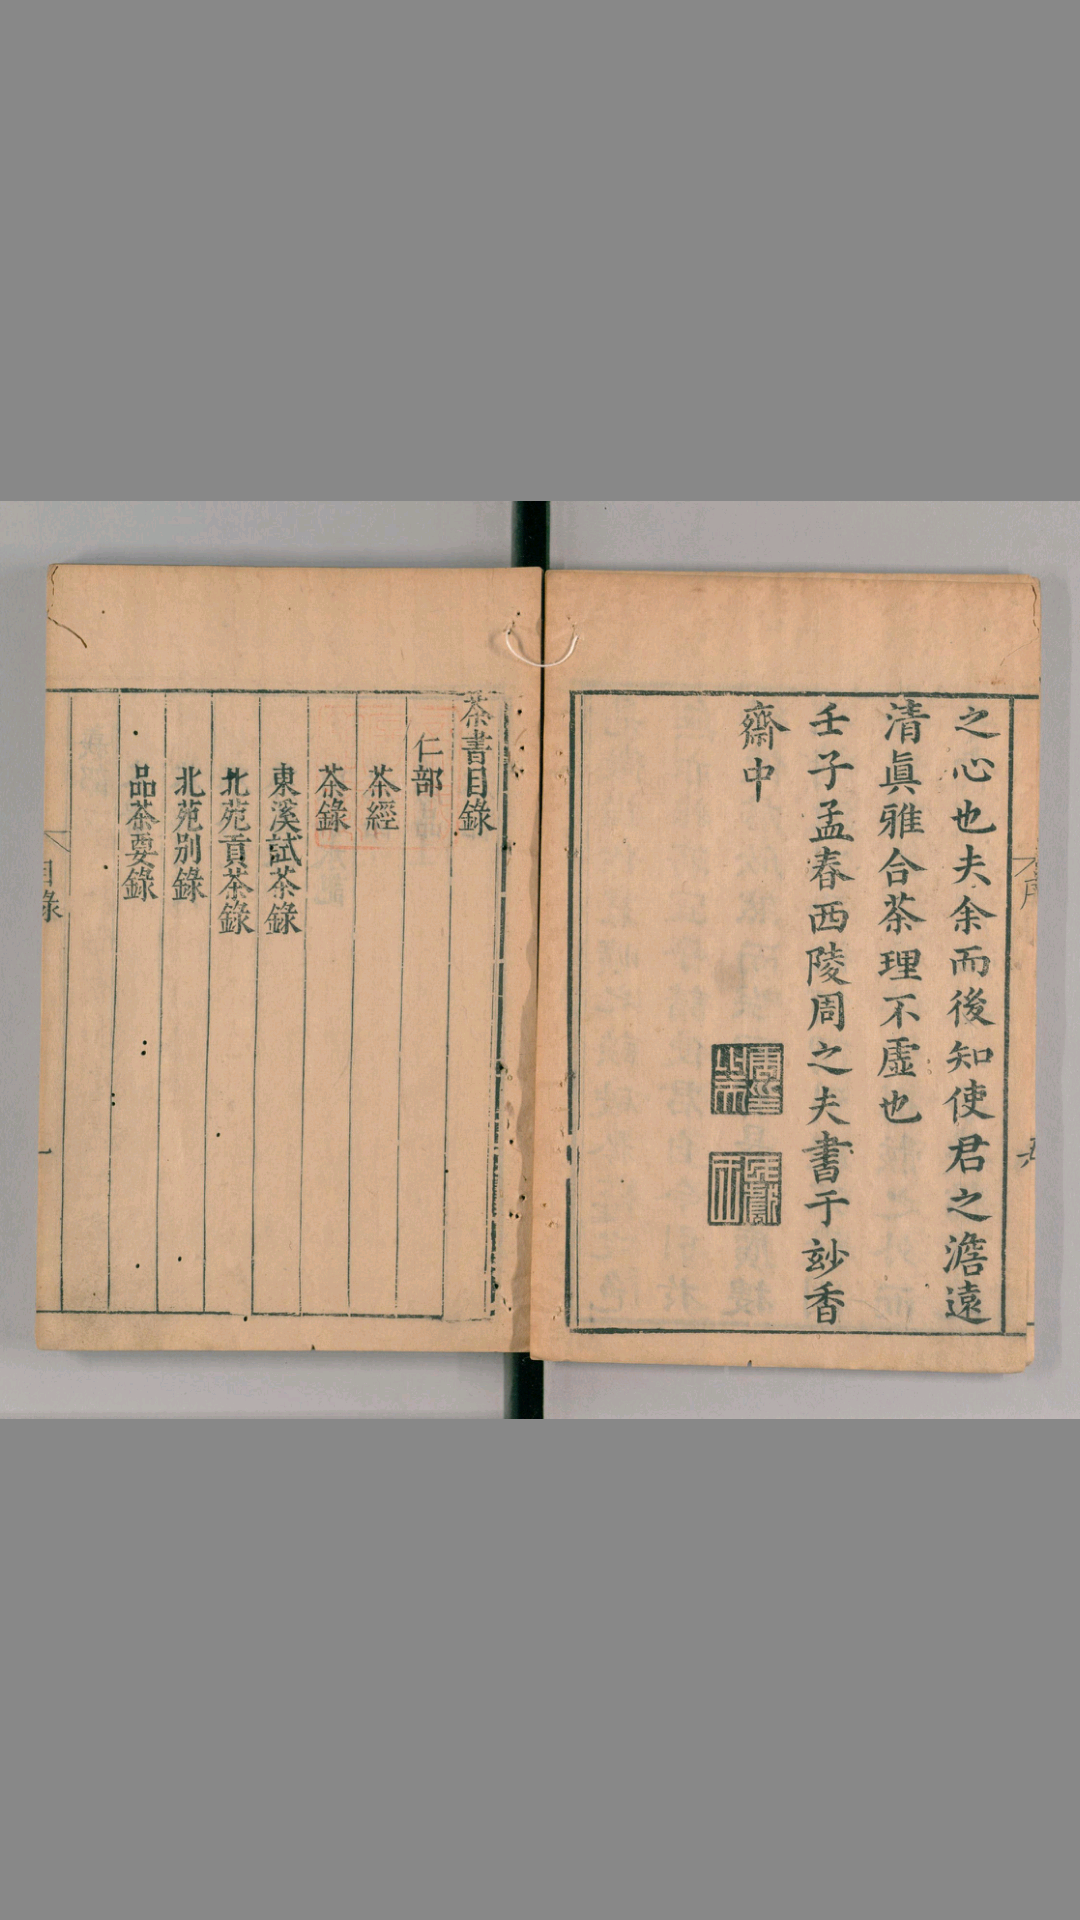 之心也夫余而後知使君之澹遠
清眞雅合茶理不虛也
壬子孟春西陵周之夫書于玅香
齋中
茶書目錄
仁部
茶經
茶錄
東溪試茶錄
北苑貢茶錄
北苑別錄
品茶要錄
目錄